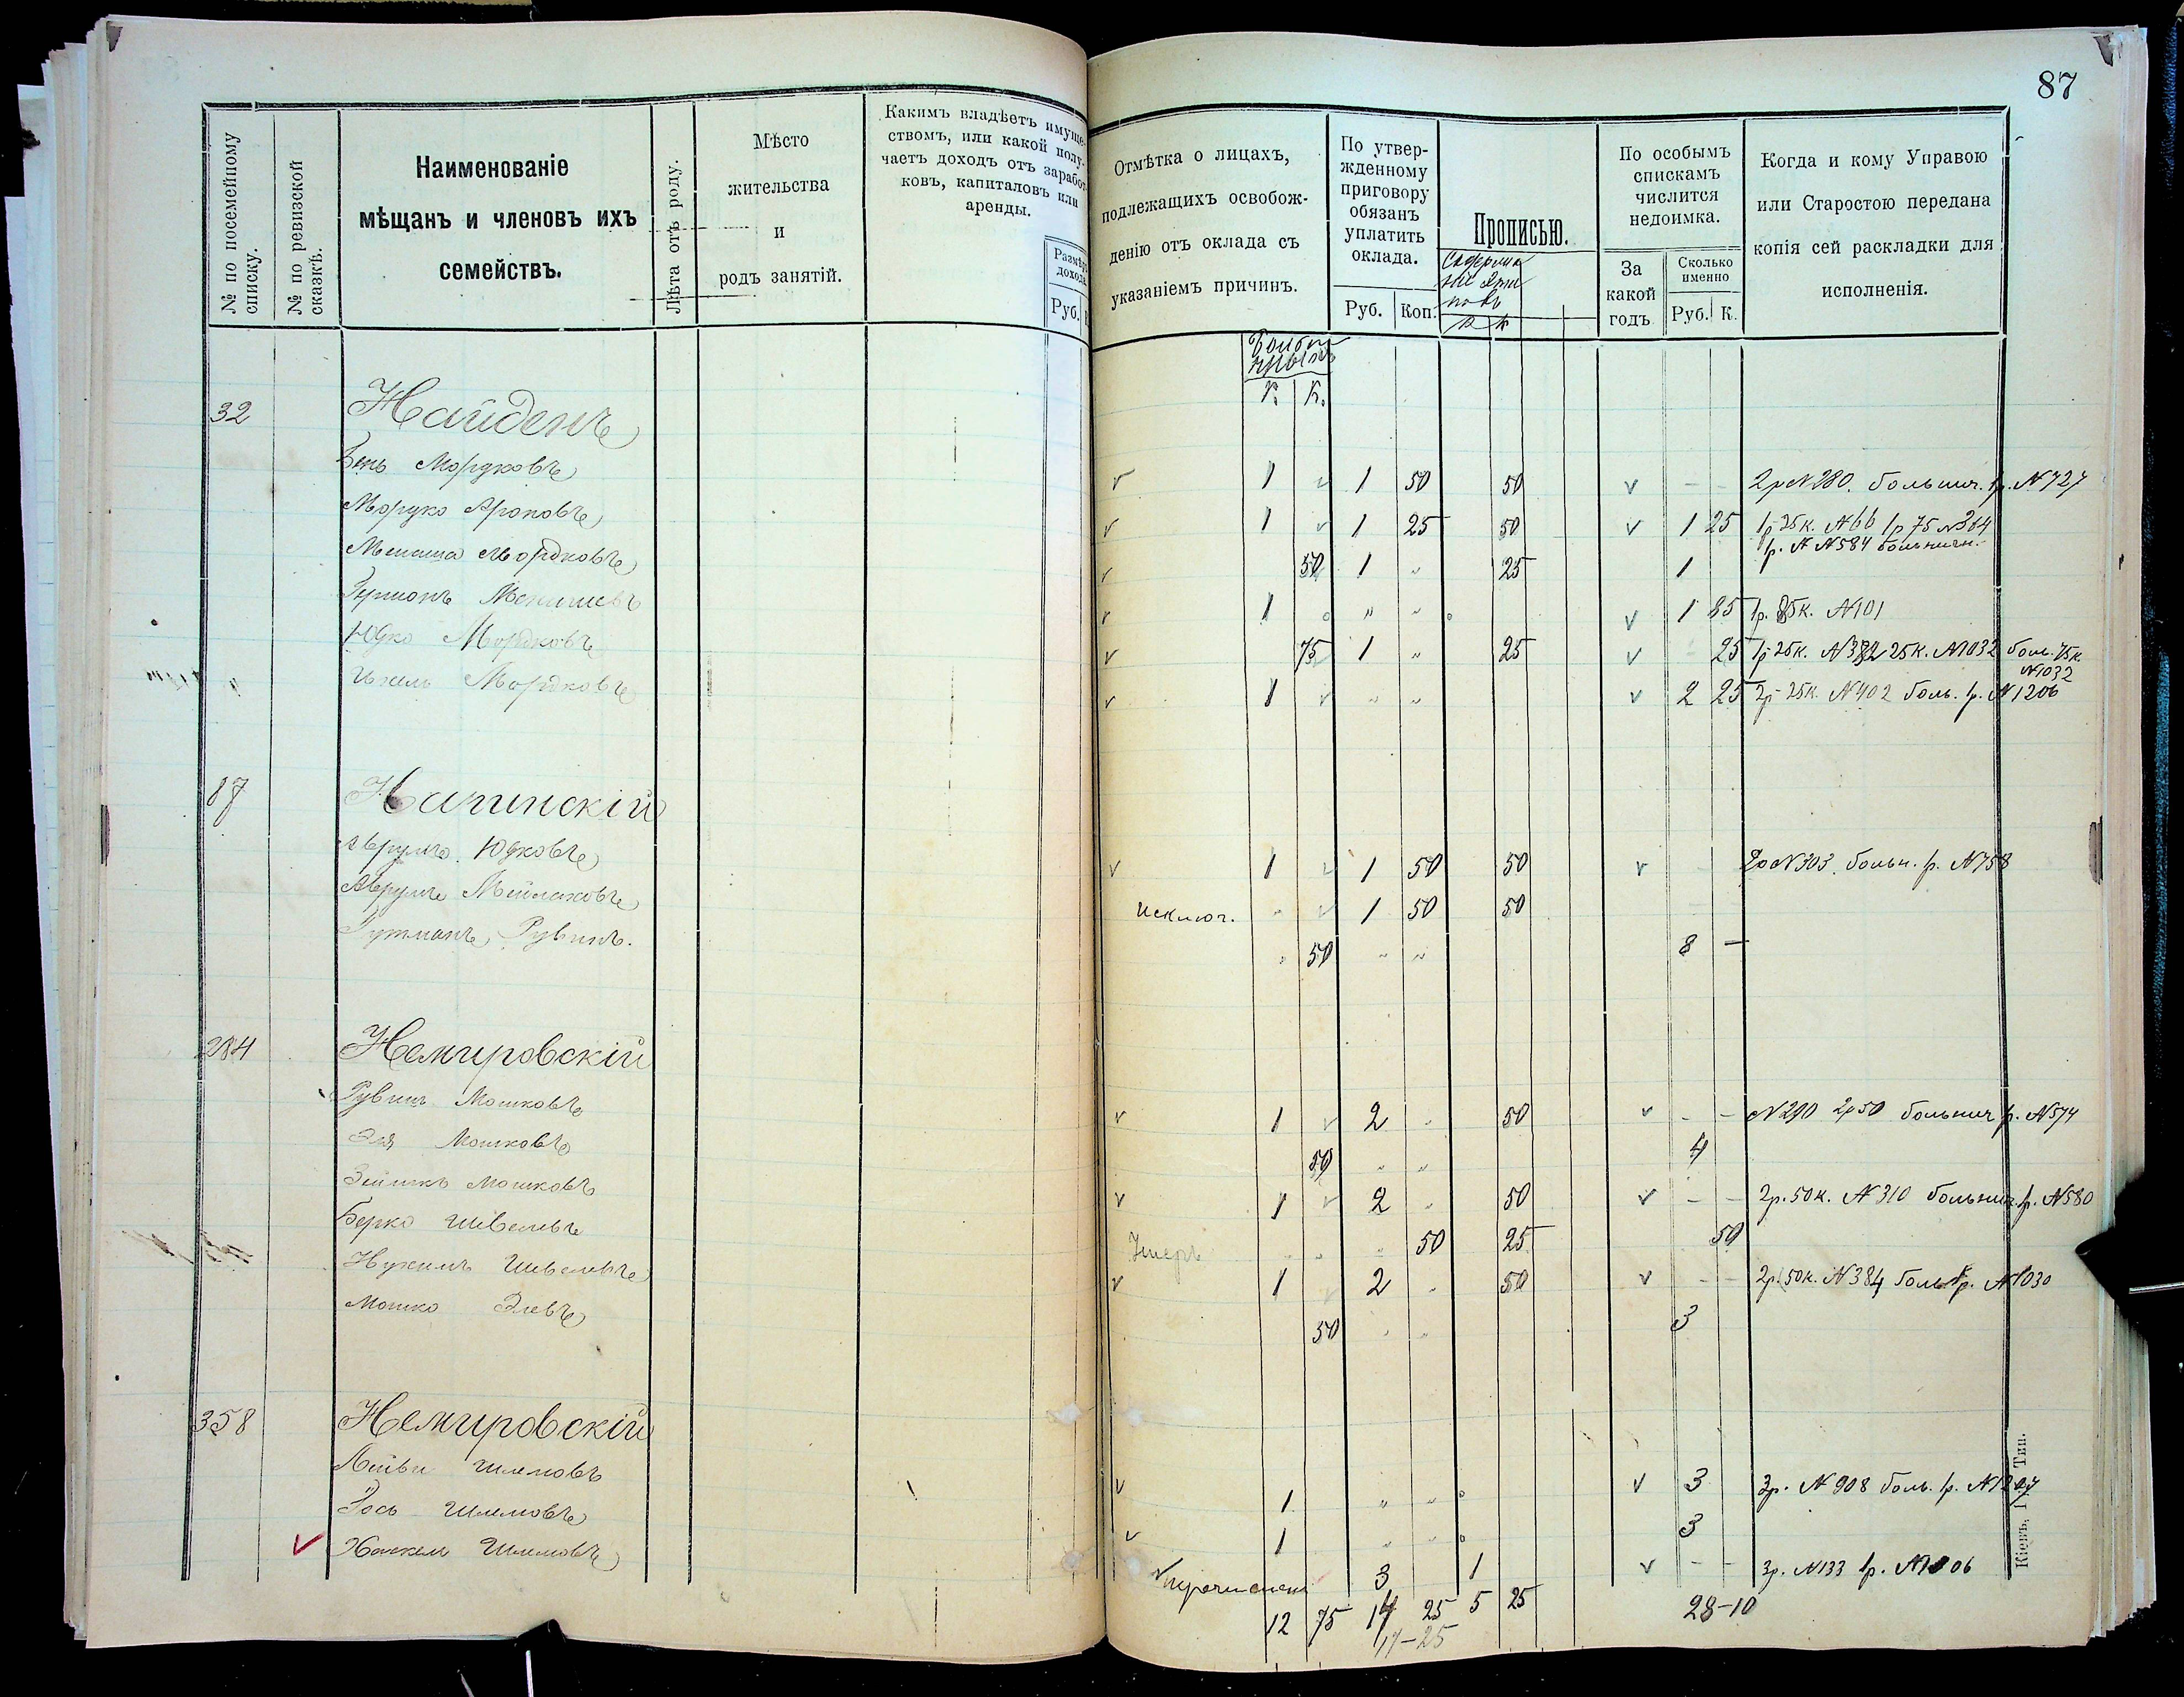 87
№ по посемейному списку.
№ по ревизской сказкѣ.
Наименованіе
мѣщанъ и членовъ ихъ
семействъ.
Лѣта отъ роду.
Мѣсто
жительства
и
родъ занятій.
Какимъ владѣетъ имуще-
ствомъ, или какой полу-
чаетъ доходъ отъ заработ-
ковъ, капиталовъ или
аренды.
Размѣръ
дохода
Руб.
Отмѣтка о лицахъ,
подлежащихъ освобож-
денію отъ оклада съ
указаніемъ причинъ.
По утвер-
жденному
приговору
обязанъ
уплатить
оклада.
Руб. Коп.
Прописью.
По особымъ
спискамъ
числится
недоимка.
За
какой
годъ
Сколько
именно
Руб. К.
Когда и кому Управою
или Старостою передана
копія сей раскладки для
исполненія.
Р. К.
32 Найденъ
Бень Мордковъ 1 1 50 50 2р N280. больнич. 1р. N727
Мордко Ароновъ 1 1 25 50 1 25 1р 25к. N66 1р 75 N364
1р. N584 больничн.
Менаша Мордковъ 50 1 25 1
Менашевъ 1 1 85 1р. 85к. N101
Юдко Мордковъ 75 1 25 25 1р 25к. N382 25к. N1032 боль. 75к.
N1032
Мордковъ 1 2 25 2р 25к. N402 боль. 1р. N1206
87 Начинскій
Аврумъ Юдковъ 1 1 50 50 2р N303. больн. 1р. N758
Аврумъ Мейлаховъ Исключ. 1 50 50
Рувинъ. 50 8 —
284 Немировскій
Рувинъ Мошковъ 1 2 50 N290 2р50 больнич 1р. N574
Эля Мошковъ 50 4
Зейликъ Мошковъ 1 2 50 2р. 50к. N310 больнич. 1р. N580
Берко Шевелевъ Умеръ 50 25 50
Нухимъ Шевелевъ 1 2 50 2р. 50к. N384 боль 1р. N1030
Мошко Элевъ 50 3
358 Немировскій
Лейба Шлемовъ 1 3 3р. N908 боль. 1р. N1207
Іось Шлемовъ 1 3
Хаскель Шлемовъ перечисленъ 3 1 3р. N133 1р. N1006
12 75 14 25 5 25 28-10
17-25
Тип.